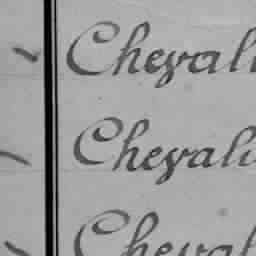 Chevali
Chevali
Cheval